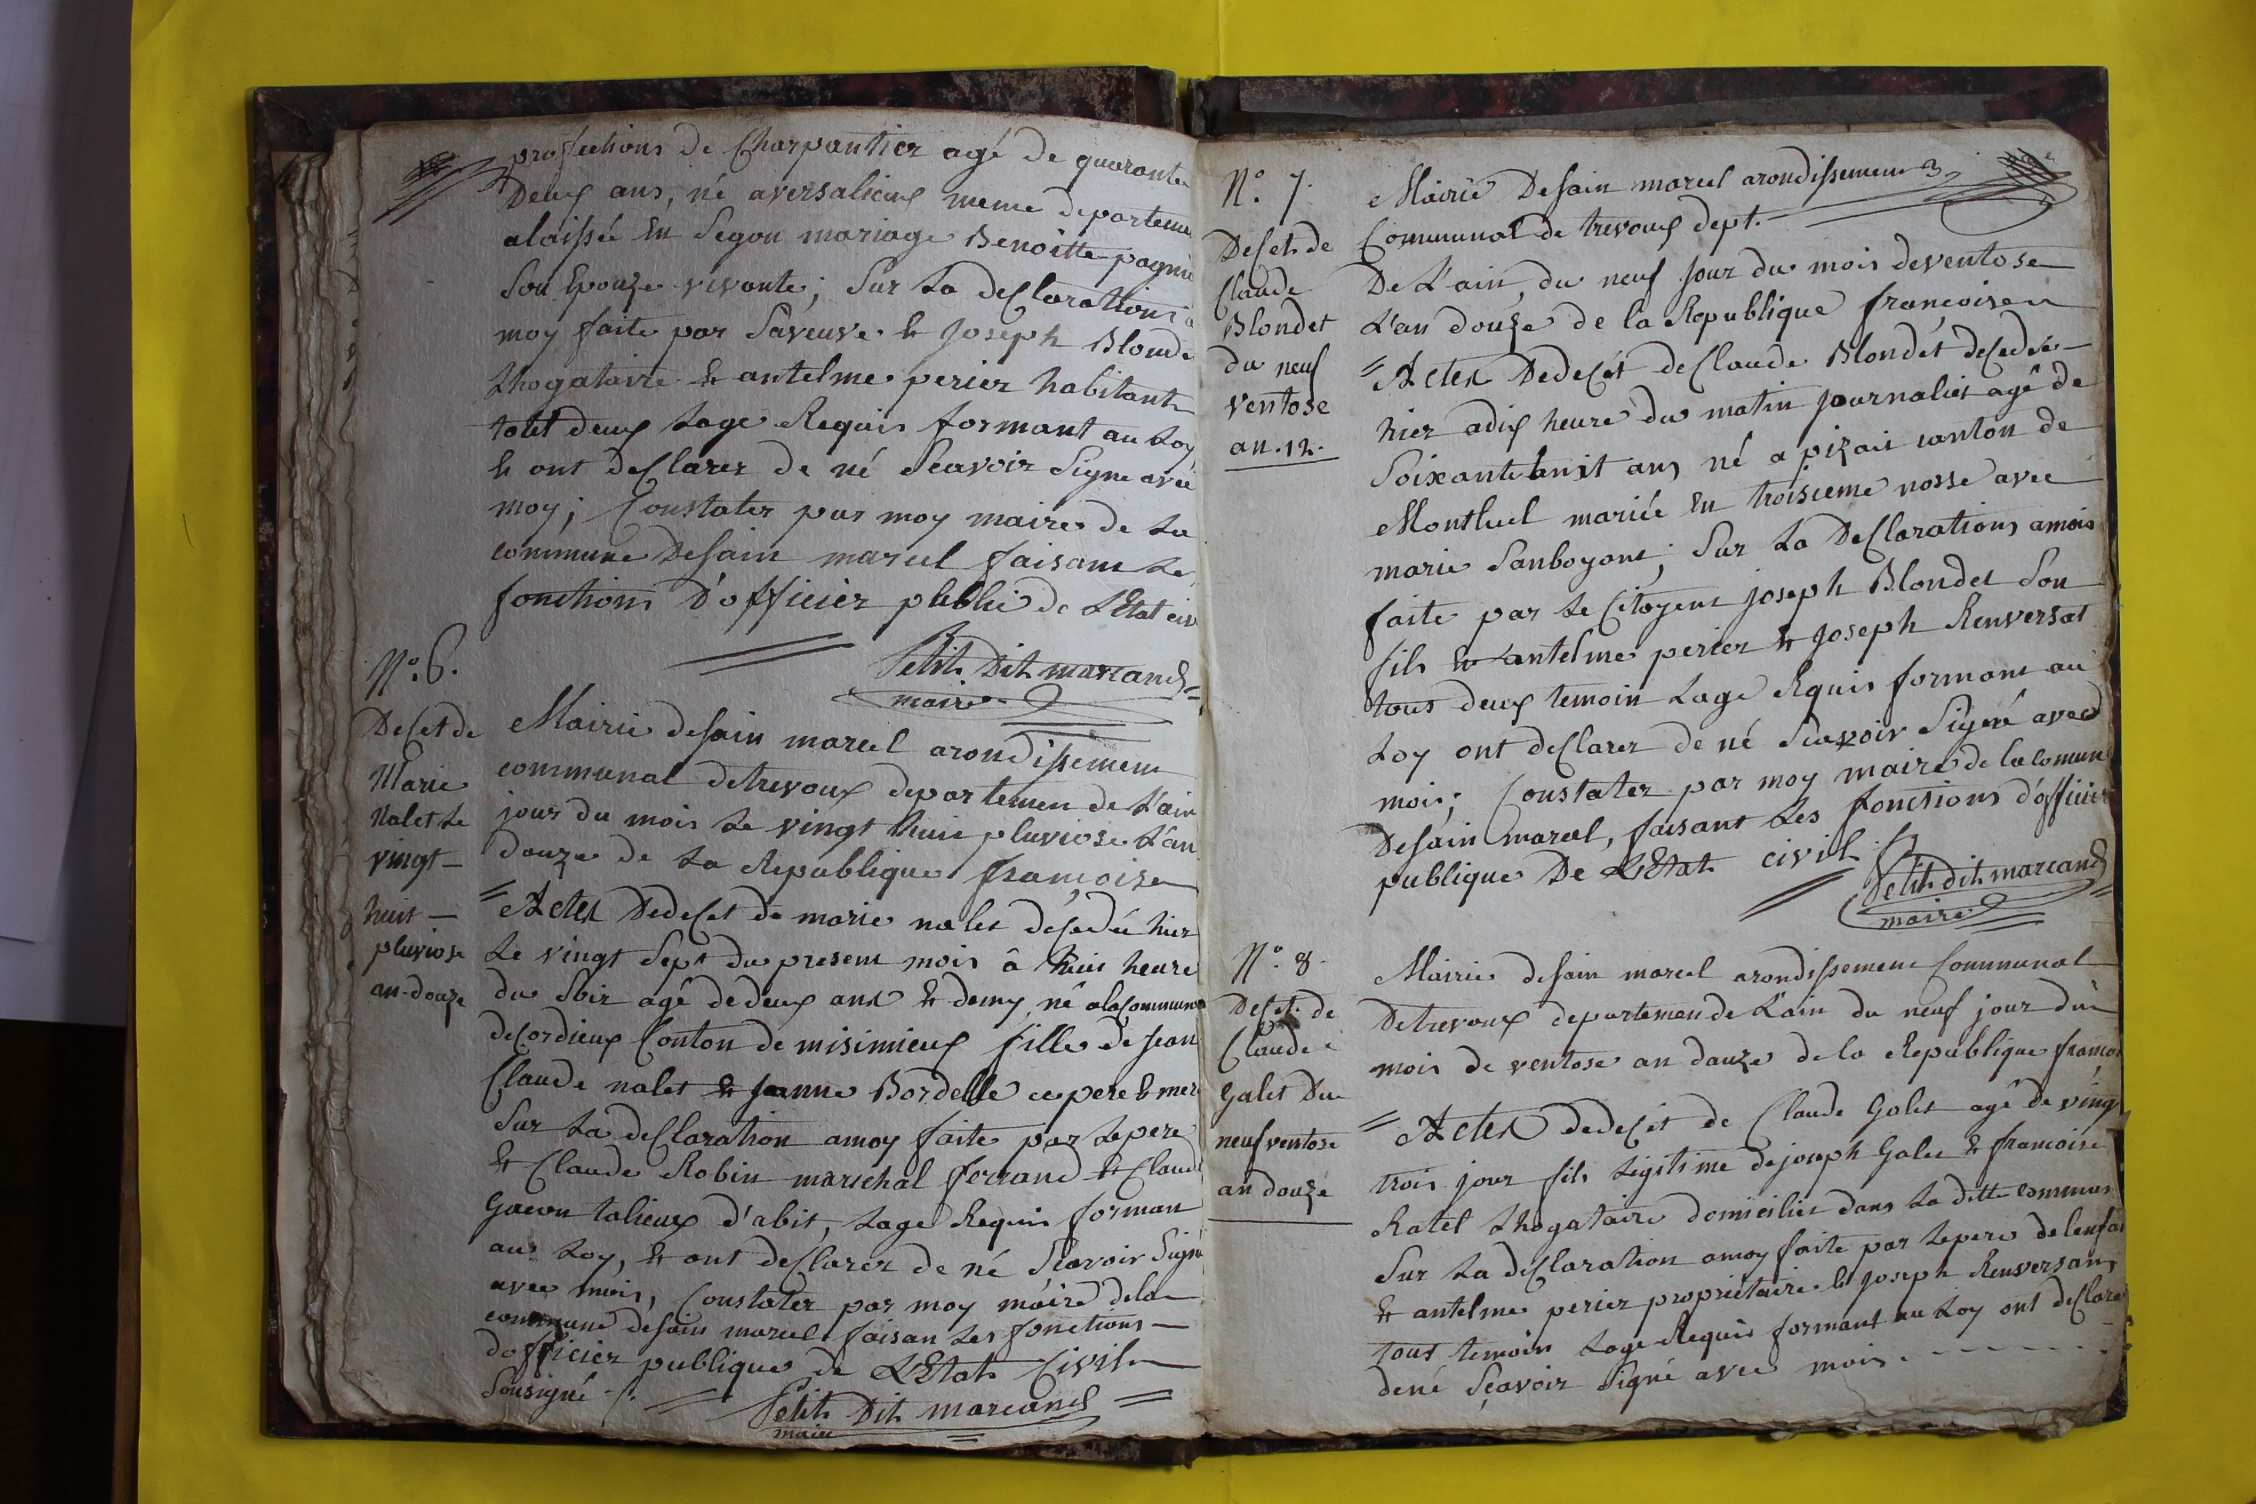 profections de Charpantier agé de quarante
Deux ans, né aversalieux meme departeme
alaissée En Segon mariage Benoitte pagni
Son Epouze vivante; Sur La desClarations a
moy faite par Saveuve & Joseph Blonde
Lhogataire & antelme perier habitant
tout deux Lage Requis formant au Loy
& ont desClarer de né Scavoir Signe avec
moy; Constater par moy maire de La
commune Desain marcel faisant Le
fonctions D'officier public de L'Etat civ
Petit Dit marcand
maire
N.o 6.
Deset de
Marie
Nalet Le
vingt
huit
pluviose
an douze
Mairie desain marcel arondissement
communal detrevoux departemen de L'ain
jour du mois Le vingt huit pluviose L'an
douze de La Republique françoise
Actes Dedeset de marie nalet désedée hier
Le vingt Sept du present mois â huit heure
du Soir agé dedeux ans & demy, né alacommune
deCordieux Conton de misimieux fille de Jean
Claude nalet & Jeanne Bordelle ce pere & mer
Sur La desClaration amoy faite par Lepere
& Claude Robin marechal ferrand & Claud
Gacon talieux d'abit, Lage Requis forman
au Loy, & ont desClarer de né Scavoir Signé
avec mois, Constater par moy maire dela
commune desain marcel faisan Les fonctions
dofficier publique de L'Etat Civil
Sousigné
Petit Dit marcand
maire
N.o 7.
Deset de
Claude
Blondet
du neuf
ventose
an. 12.
Mairie Desain marcel arondissement 3
Communal de trevoux dept.
De L'ain, du neuf Jour du mois deventose
L'an douze de la Republique françoise
Actes Dedeset deClaude Blondet desedée
hier adix heure du matin Journalier agé de
Soixante huit ans né a pizais canton de
Montluel mariée En troisieme nosse avec
marie Sanboyant; Sur La DesClarations amois
faite par Le Citoyent joseph Blondet Son
fils & antelme perier & Joseph Renversat
tous deux temoin Lage Requis formant au
Loy ont desClarer de né Scavoir Signé avec
mois; Constater par moy maire de lacomune
Desain marcel, faisant Les fonctions d'officier
publique De L'Etat civil
Petit dit marcand
maire
N.o 8.
Deset de
Claude
Galet Du
neuf ventose
an douze
Mairie desain marcel arondissement Communal
Detrevoux departemen de L'ain du neuf jour du
mois de ventose an douze de la Republique françoi
Actes dedeset de Claude Galet agé de ving
trois jour fils Legitime dejoseph Galet & francoise
Ratel Lhogataire domicilier dans La ditte commun
Sur La desClaration amoy faite par Lepere de lenfan
& antelme perier propriétaire & Joseph Renversan
tous temoin Lage Requis formant au Loy ont desClare
de né Sçavoir Signé avec mois